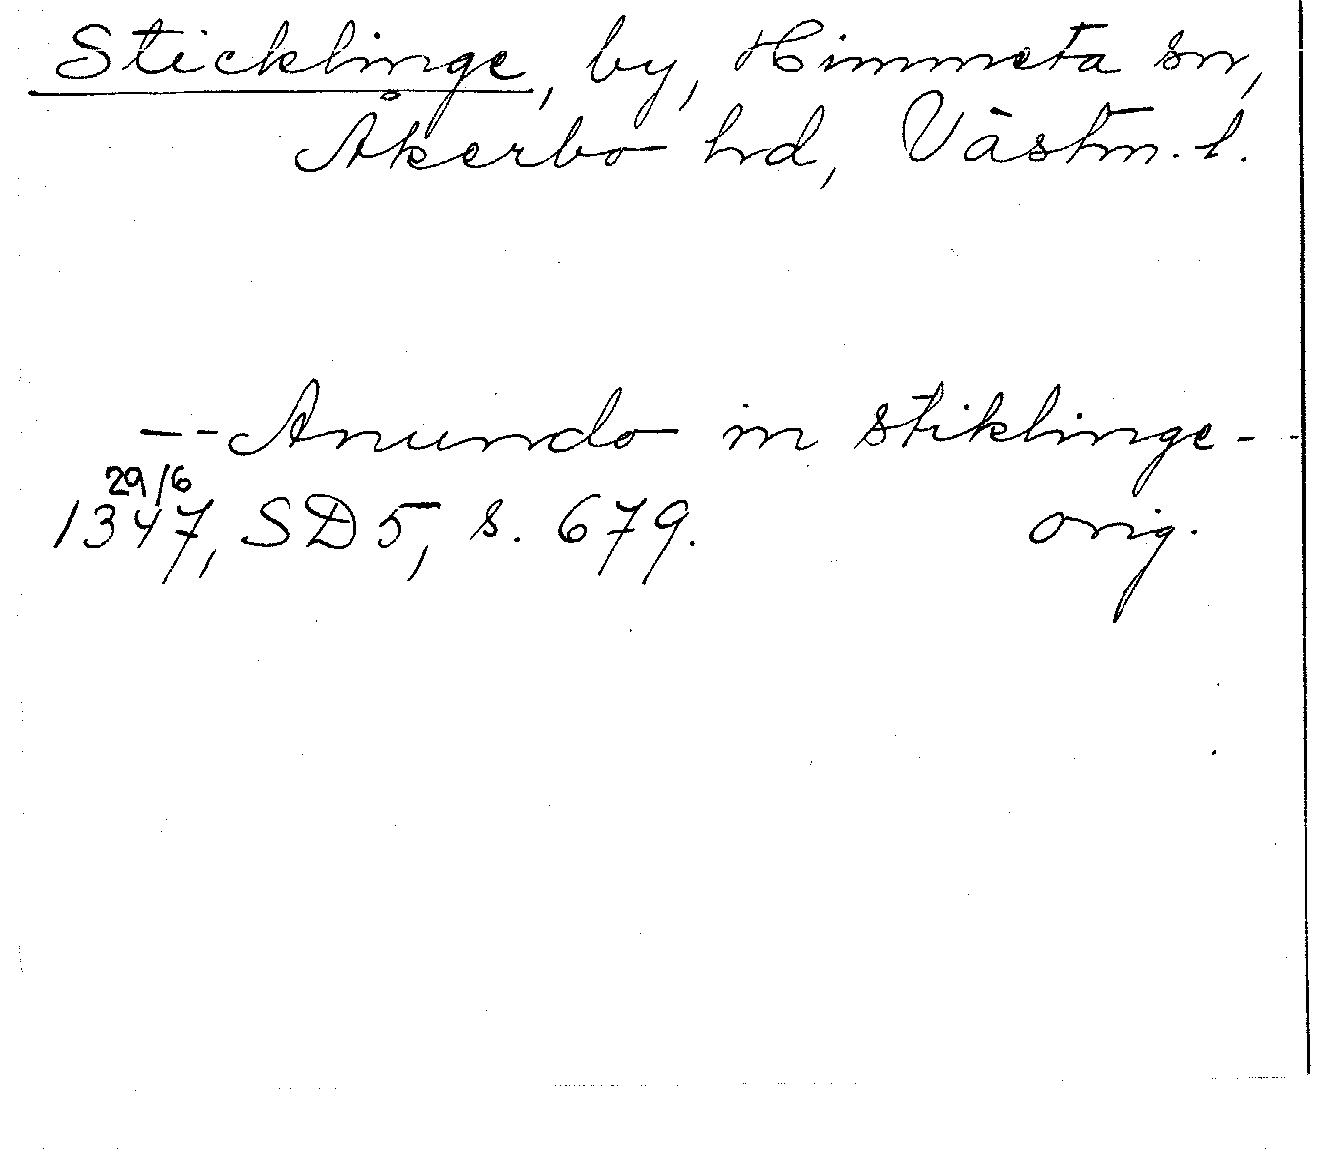 Sticklinge, by, Himmeta sn,
Åkerbo hrd, Västm. l.
-- Anundo in stiklinge --
29/6
1347, SD 5, s. 679. orig.